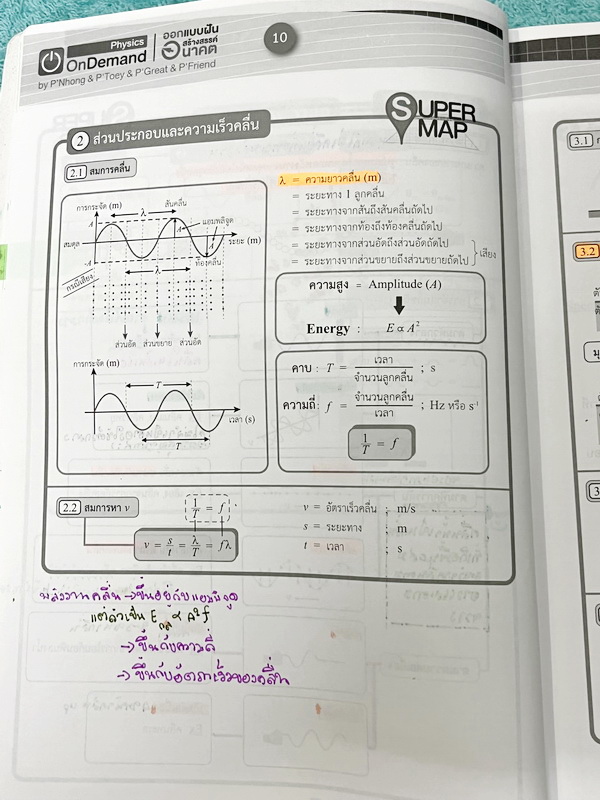 Physics
OnDemand
ออกแบบฝัน
สร้างสรรค์
อนาคต
10
by P'Nhong & P'Toey & P'Great & P'Friend
SUPER
MAP
2 ส่วนประกอบและความเร็วคลื่น
2.1 สมการคลื่น
การกระจัด (m)
λ
สันคลื่น
แอมพลิจูด
A
A
สมดุล
ระยะ (m)
A
-A
ท้องคลื่น
กรณีเสียง
λ
ส่วนอัด ส่วนขยาย ส่วนอัด
การกระจัด (m)
T
เวลา (s)
T
λ = ความยาวคลื่น (m)
= ระยะทาง 1 ลูกคลื่น
= ระยะทางจากสันถึงสันคลื่นถัดไป
= ระยะทางจากท้องถึงท้องคลื่นถัดไป
= ระยะทางจากส่วนอัดถึงส่วนอัดถัดไป
= ระยะทางจากส่วนขยายถึงส่วนขยายถัดไป } เสียง
ความสูง = Amplitude (A)
Energy : E ∝ A²
คาบ : T = เวลา / จำนวนลูกคลื่น ; s
ความถี่ : f = จำนวนลูกคลื่น / เวลา ; Hz หรือ s⁻¹
1/T = f
2.2 สมการหา v
1/T = f
v = s/t = λ/T = fλ
v = อัตราเร็วคลื่น ; m/s
s = ระยะทาง ; m
t = เวลา ; s
พลังงานคลื่น → ขึ้นอยู่กับแอมพลิจูด
แต่ถ้าเป็น E ∝ A²f
→ ขึ้นกับความถี่
→ ขึ้นกับอัตราเร็วของคลื่น
3.1
3.2